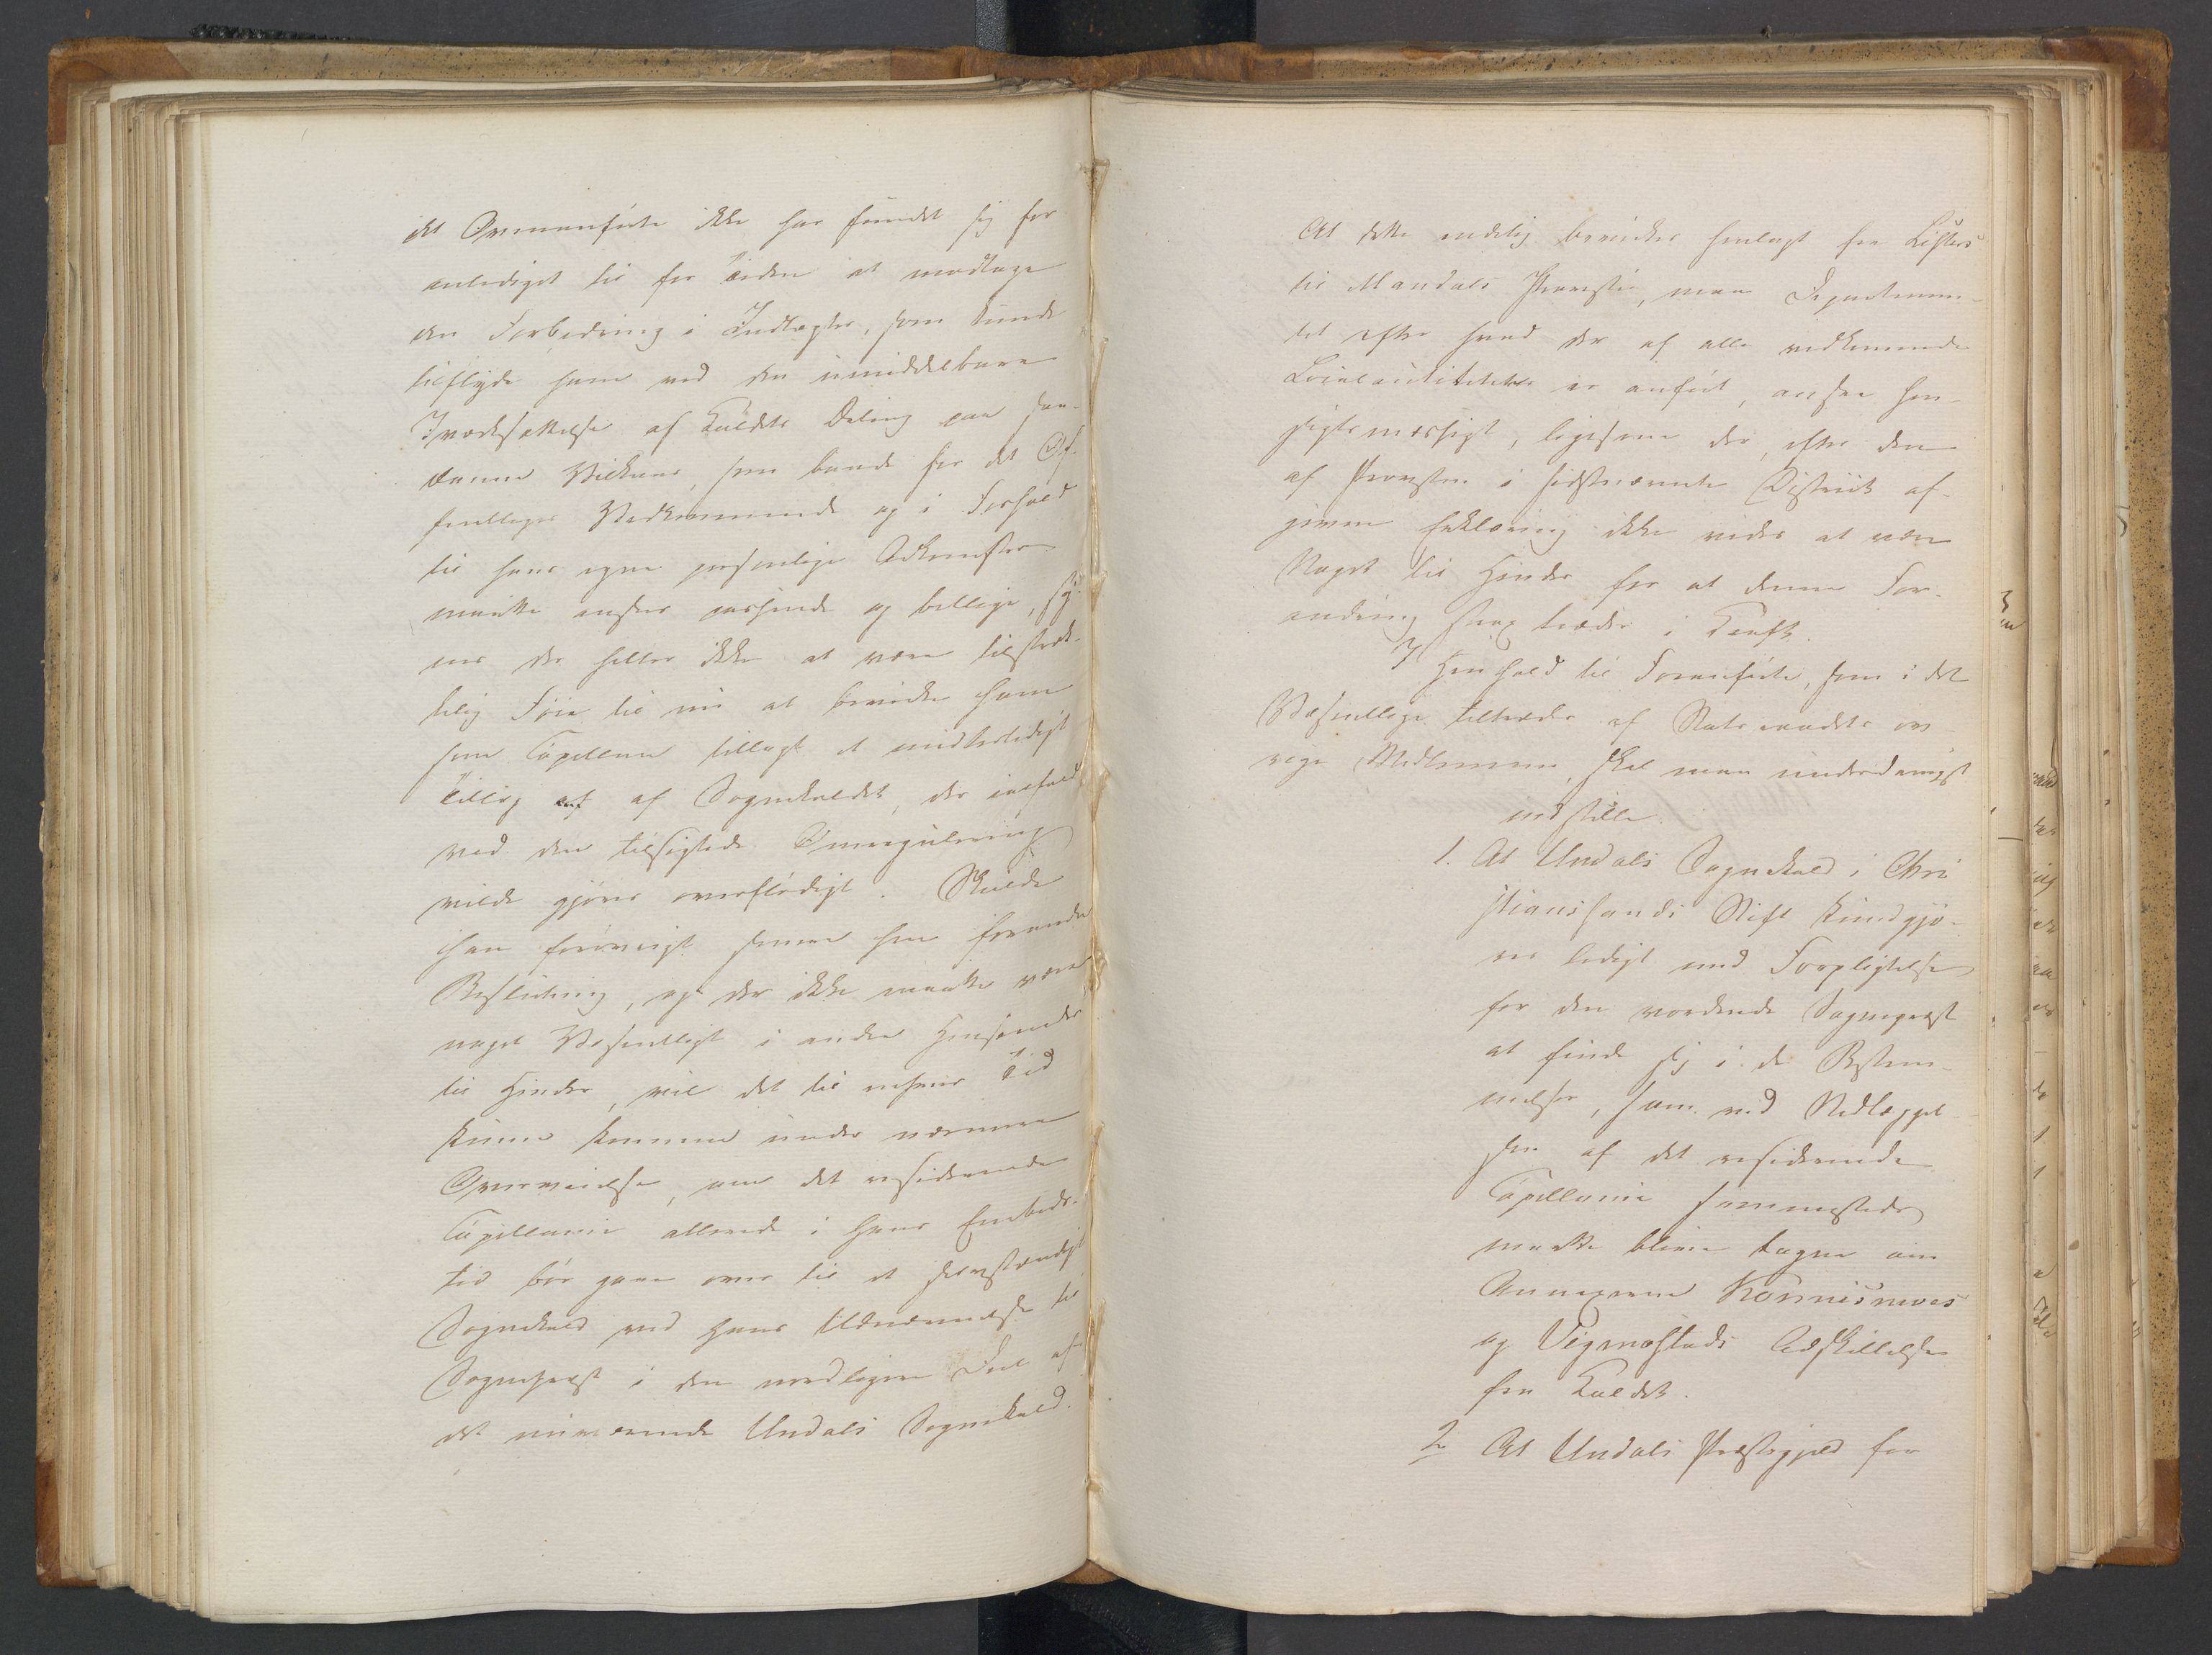 det Ovenanførte ikke har fundet sig for
anlediget til for Tiden at modtage
den Forbedring i Indtægter, som kunde
tilflyde ham ved den umiddelbare
Iværksættelse af Kaldets Deling paa saa-
danne Vilkaar, som baade for det Of-
fentliges Vedkommende og i Forhold
til hans egne personlige Adkomster
maatte ansees passende og billige, sy-
nes der heller ikke at være tilstræk-
kelig Føie til nu at bevirke ham
som Capellan tillagt et midlertidigt
Tillæg af Sognekaldet, der ialfald
ved den tilsigtede Omregulering
vilde gjøres overflødigt. Skulde
han forøvrigt senere
Beslutning, og der ikke maatte være
noget Væsentligt i andre Henseender
til Hinder, vil det til enhver Tid
kunne komme under nærmere
Overveielse, om det residerende
Capellanie allerede i hans Embeds-
tid bør gaae over til et selvstændigt
Sognekald ved hans Udnævnelse til
Sognepræst i den nordligere Deel af
det nuværende Undals Sognekald.
At dette endelig bevirkes henlagt fra Listers
til Mandals Provstie, maa Departemen-
tet efter hvad der af alle vedkommende
Localautoriteter er anført, ansee hen-
sigtsmæssigt, ligesom der, efter den
af Provsten i sidstnævnte District af-
givne Erklæring ikke vides at være
Noget til Hinder for at denne For-
andring strax træder i Kraft.
I Henhold til Foranførte, som i det
Væsentlige tiltrædes af Statsraadets øv-
rige Medlemmer, skal man underdanigst
indstille:
1. At Undals Sognekald i Chri
stianssands Stift kundgjø-
res ledigt med Forpligtelse
for den vordende Sognepræst
at finde sig i de Bestem-
melser, som ved Nedlæggel-
sen af det residerende
Capellanie sammesteds
maatte blive tagne om
Annexerne Konnismoes
og Vigmostads Adskillelse
fra Kaldet.
2 At Undals Præstegjeld fra